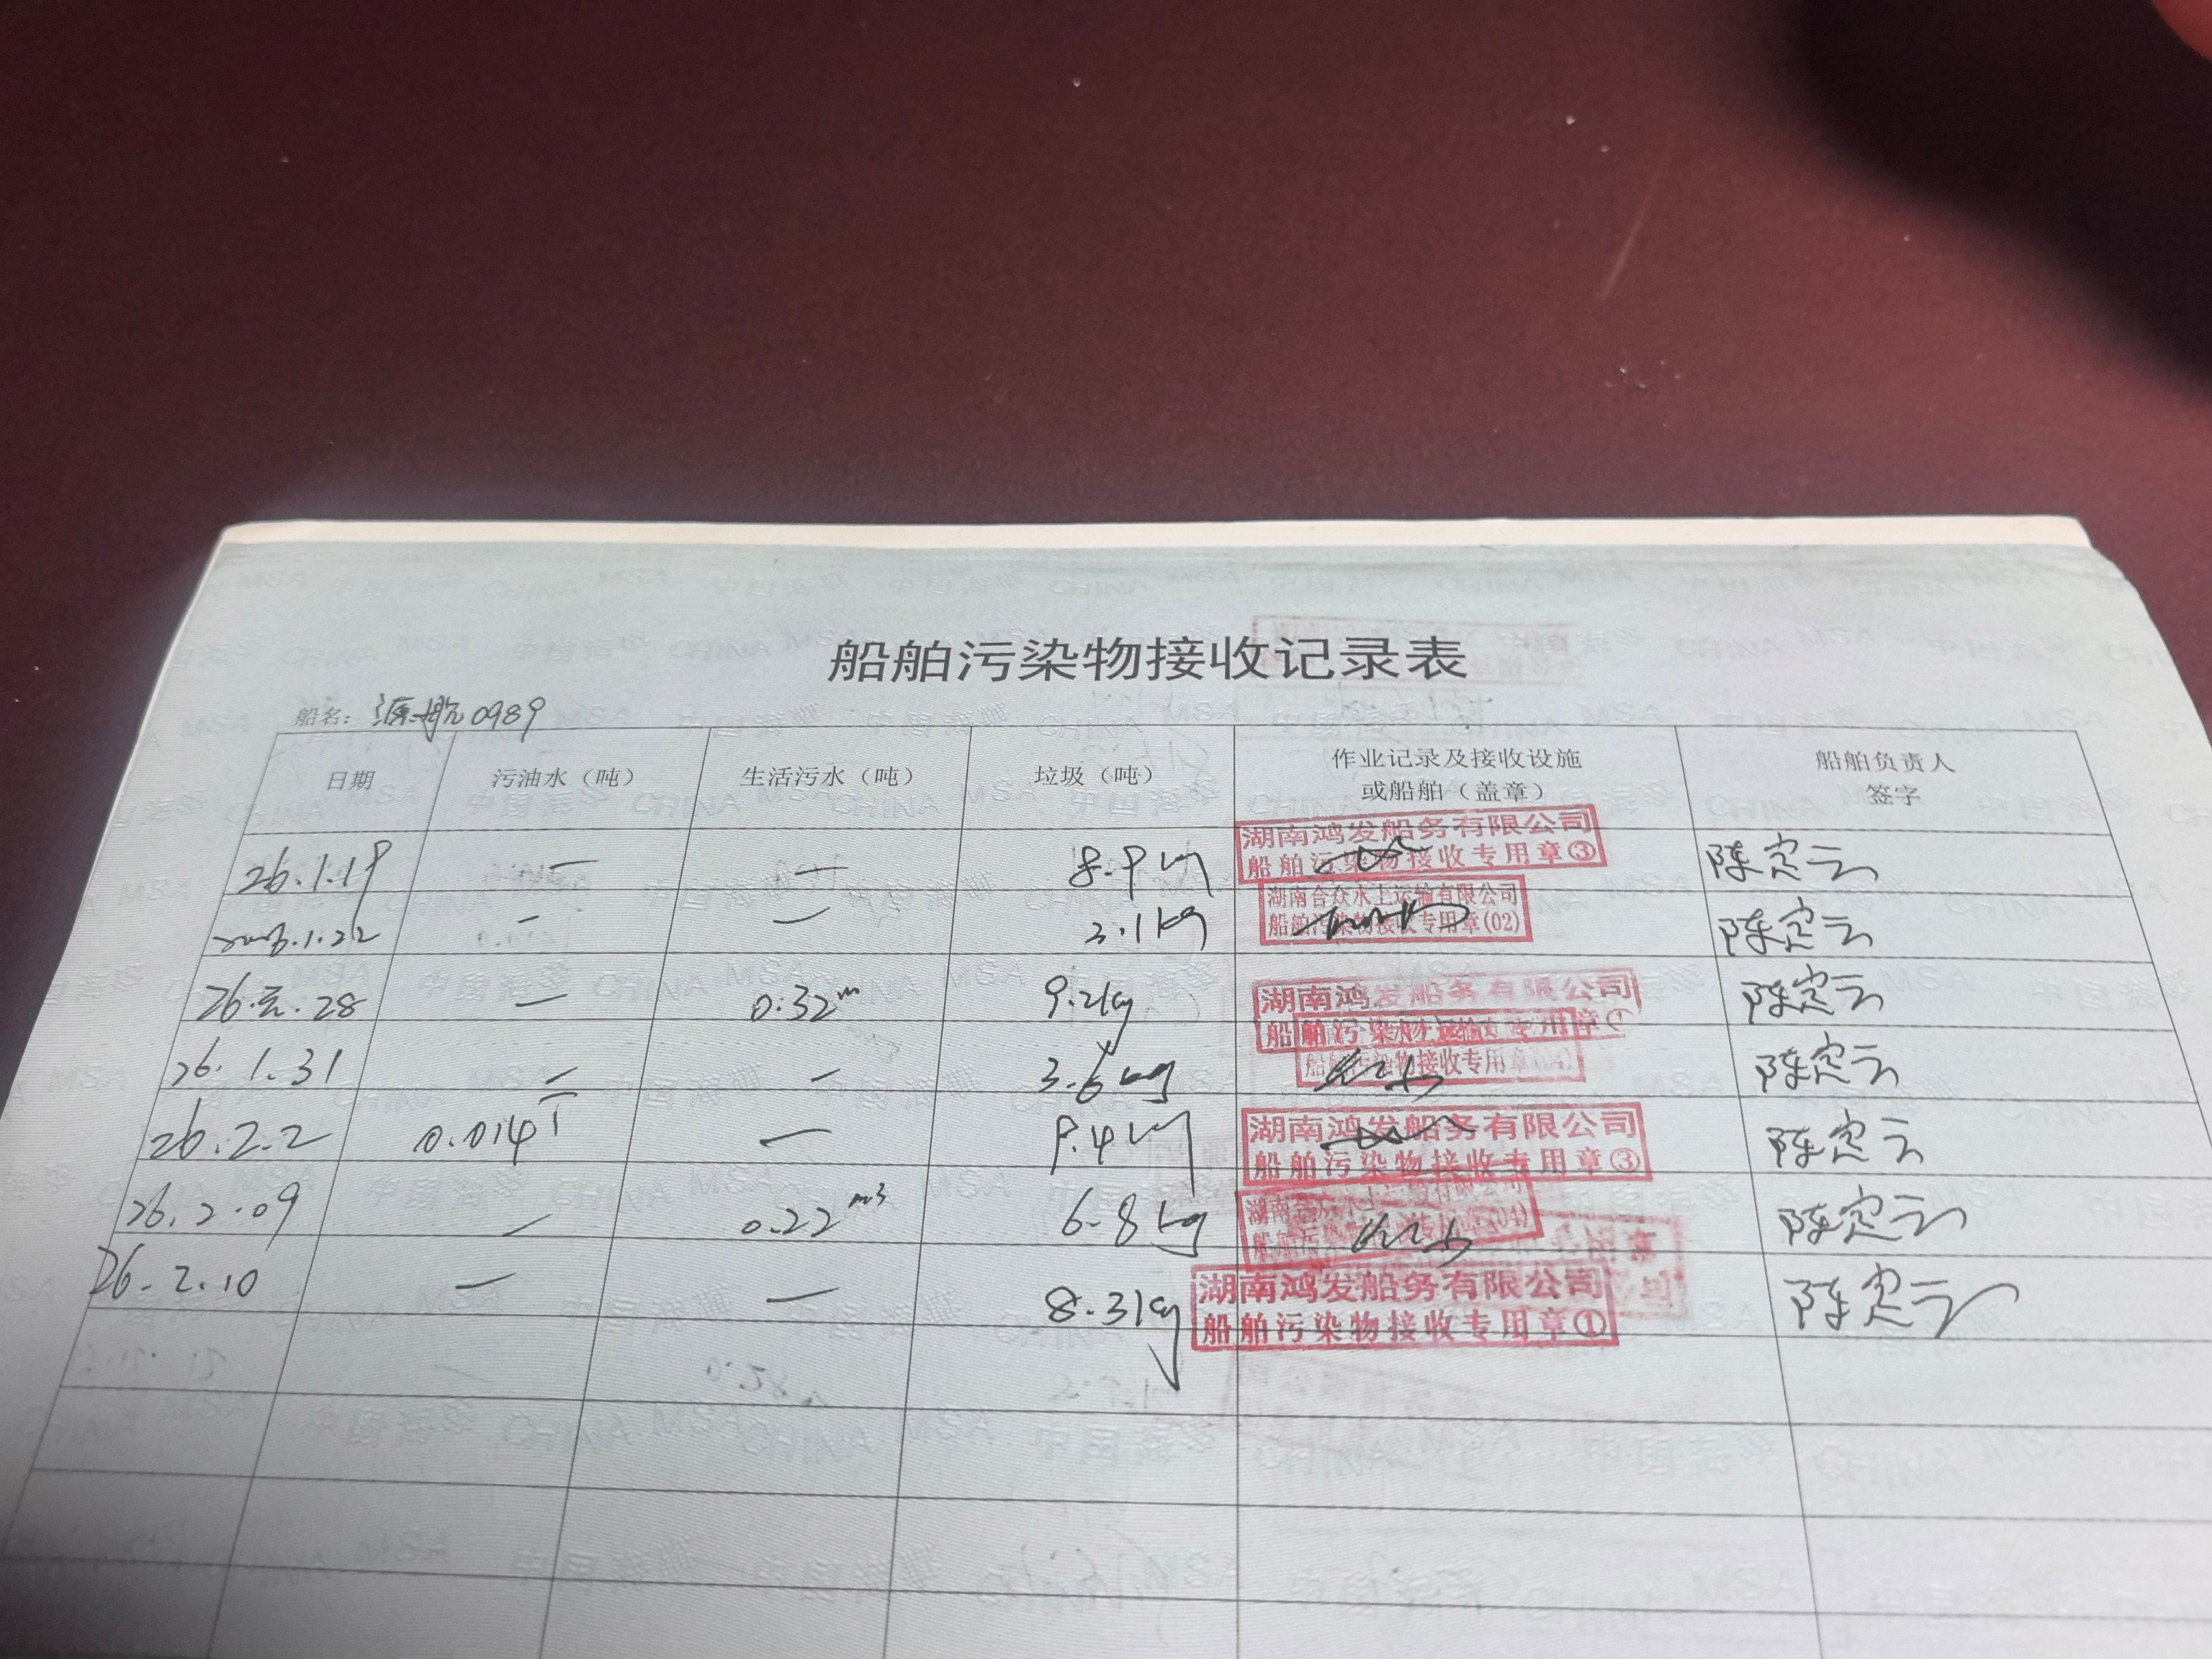 船舶污染物接收记录表
船名：源航0989
日期 污油水（吨） 生活污水（吨） 垃圾（吨） 作业记录及接收设施或船舶（盖章） 船舶负责人签字
26.1.19 — — 8.9kg 湖南鸿发船务有限公司 船舶污染物接收专用章③ 陈定云
2026.1.22 — — 3.1kg 湖南合众水上运输有限公司 船舶污染物接收专用章(02) 陈定云
26.元.28 — 0.32m 9.2kg 湖南鸿发船务有限公司 船舶污染物 专用章① 陈定云
26.1.31 — — 3.6kg 船舶污染物接收专用章(04) 陈定云
26.2.2 0.014T — 9.4kg 湖南鸿发船务有限公司 船舶污染物接收专用章③ 陈定云
26.2.09 — 0.22m3 6.8kg 湖南 (04) 陈定云
26.2.10 — — 8.3kg 湖南鸿发船务有限公司 船舶污染物接收专用章① 陈定云